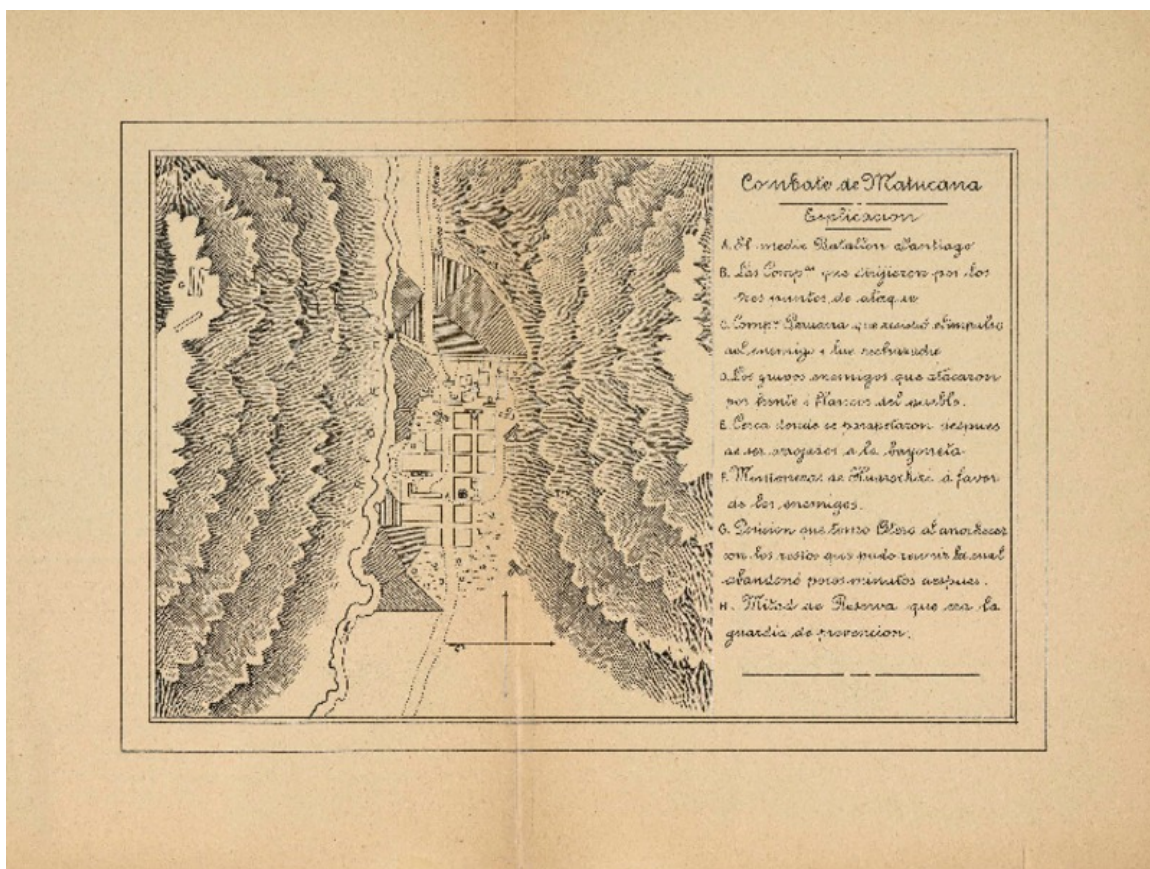 Combate de Matucana
Esplicacion
A. El medio Batallon Santiago
B. Las Comp.as que dirijieron por los
tres puntos de ataque
C. Comp.a Peruana que resistió el impulso
del enemigo i fue rechazado
D. Los grupos enemigos que atacaron
por frente i flancos del pueblo.
E. Cerca donde se parapetaron despues
de ser arrojados a la bayoneta
F. Montoneras de Huarochirí á favor
de los enemigos.
G. Posicion que tomó Otero al anochecer
con los restos que pudo reunir la cual
abandonó pocos minutos despues.
H. Mitad de Reserva que era la
guardia de prevencion.